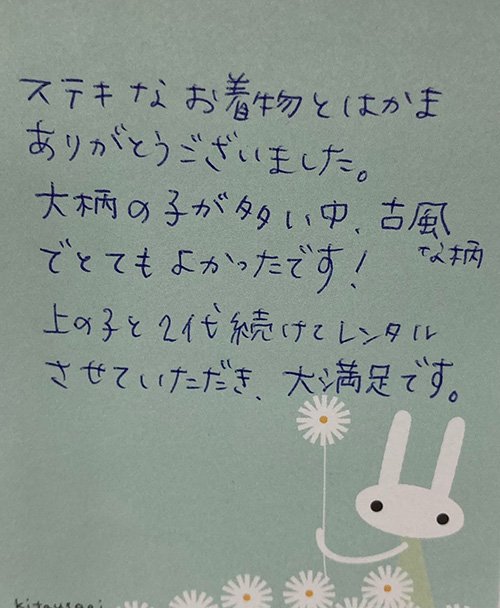 ステキなお着物とはかま
ありがとうございました。
大柄の子が多い中、古風
な柄
でとてもよかったです！
上の子と2代続けてレンタル
させていただき、大満足です。